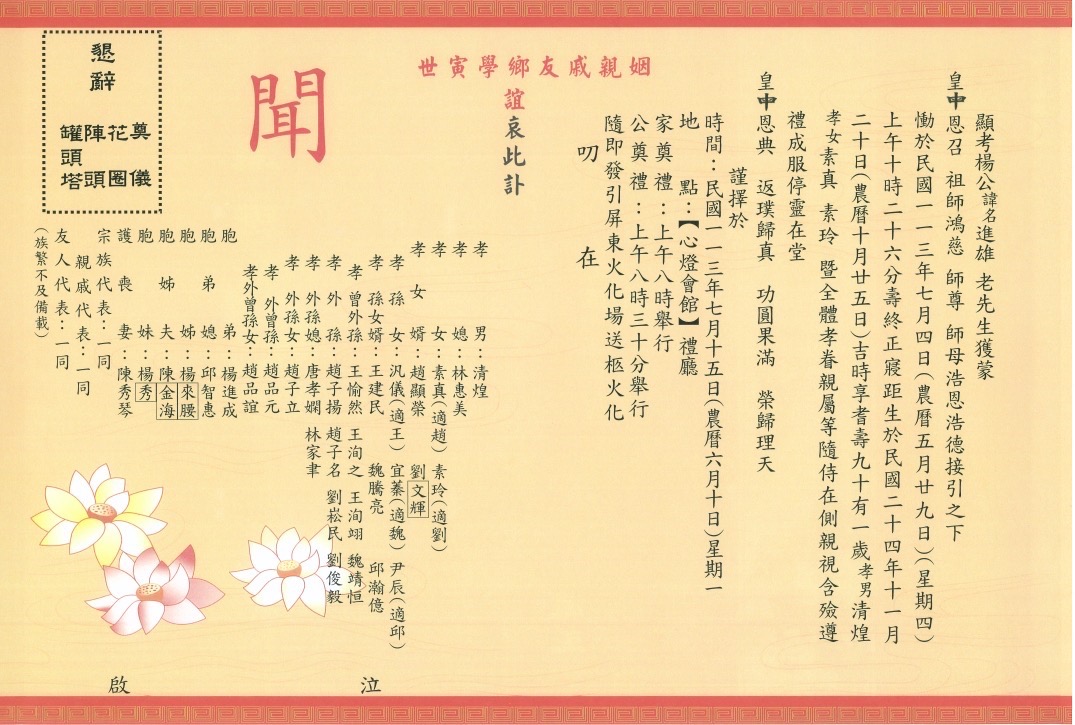 顯考楊公諱名進雄 老先生獲蒙
皇中恩召 祖師鴻慈 師尊 師母浩恩浩德接引之下
慟於民國一一三年七月四日(農曆五月廿九日)(星期四)
上午十時二十六分壽終正寢距生於民國二十四年十一月
二十日(農曆十月廿五日)吉時享耆壽九十有一歲孝男清煌
孝女素真 素玲 暨全體孝眷親屬等隨侍在側親視含殮遵
禮成服停靈在堂
皇中恩典 返璞歸真 功圓果滿 榮歸理天
謹擇於
時間：民國一一三年七月十五日(農曆六月十日)星期一
地 點：【心燈會館】禮廳
家奠禮：上午八時舉行
公奠禮：上午八時三十分舉行
隨即發引屏東火化場送柩火化
叨 在
姻親戚友鄉學寅世
誼哀此訃
聞
孝 男：清煌
孝 媳：林惠美
孝 女：素真(適趙) 素玲(適劉)
孝 女 婿：趙顯榮 劉文輝
孝 孫 女：汎儀(適王) 宜蓁(適魏) 尹辰(適邱)
孝 孫女婿：王建民 魏騰亮 邱瀚億
孝 曾外孫：王愉然 王洵之 王洵翊 魏靖恒
孝 外 孫：趙子揚 趙子名 劉崧民 劉俊毅
孝 外孫媳：唐孝嫻 林家聿
孝 外孫女：趙子立
孝 外曾孫：趙品元
孝外曾孫女：趙品誼
胞 弟：楊進成
胞 弟 媳：邱智惠
胞 姊：楊來腰
胞 姊 夫：陳金海
胞 妹：楊秀
護 喪 妻：陳秀琴
宗族代表：一同
親戚代表：一同
友人代表：一同
(族繁不及備載)
泣 啟
懇辭
奠儀
花圈
陣頭
罐頭塔